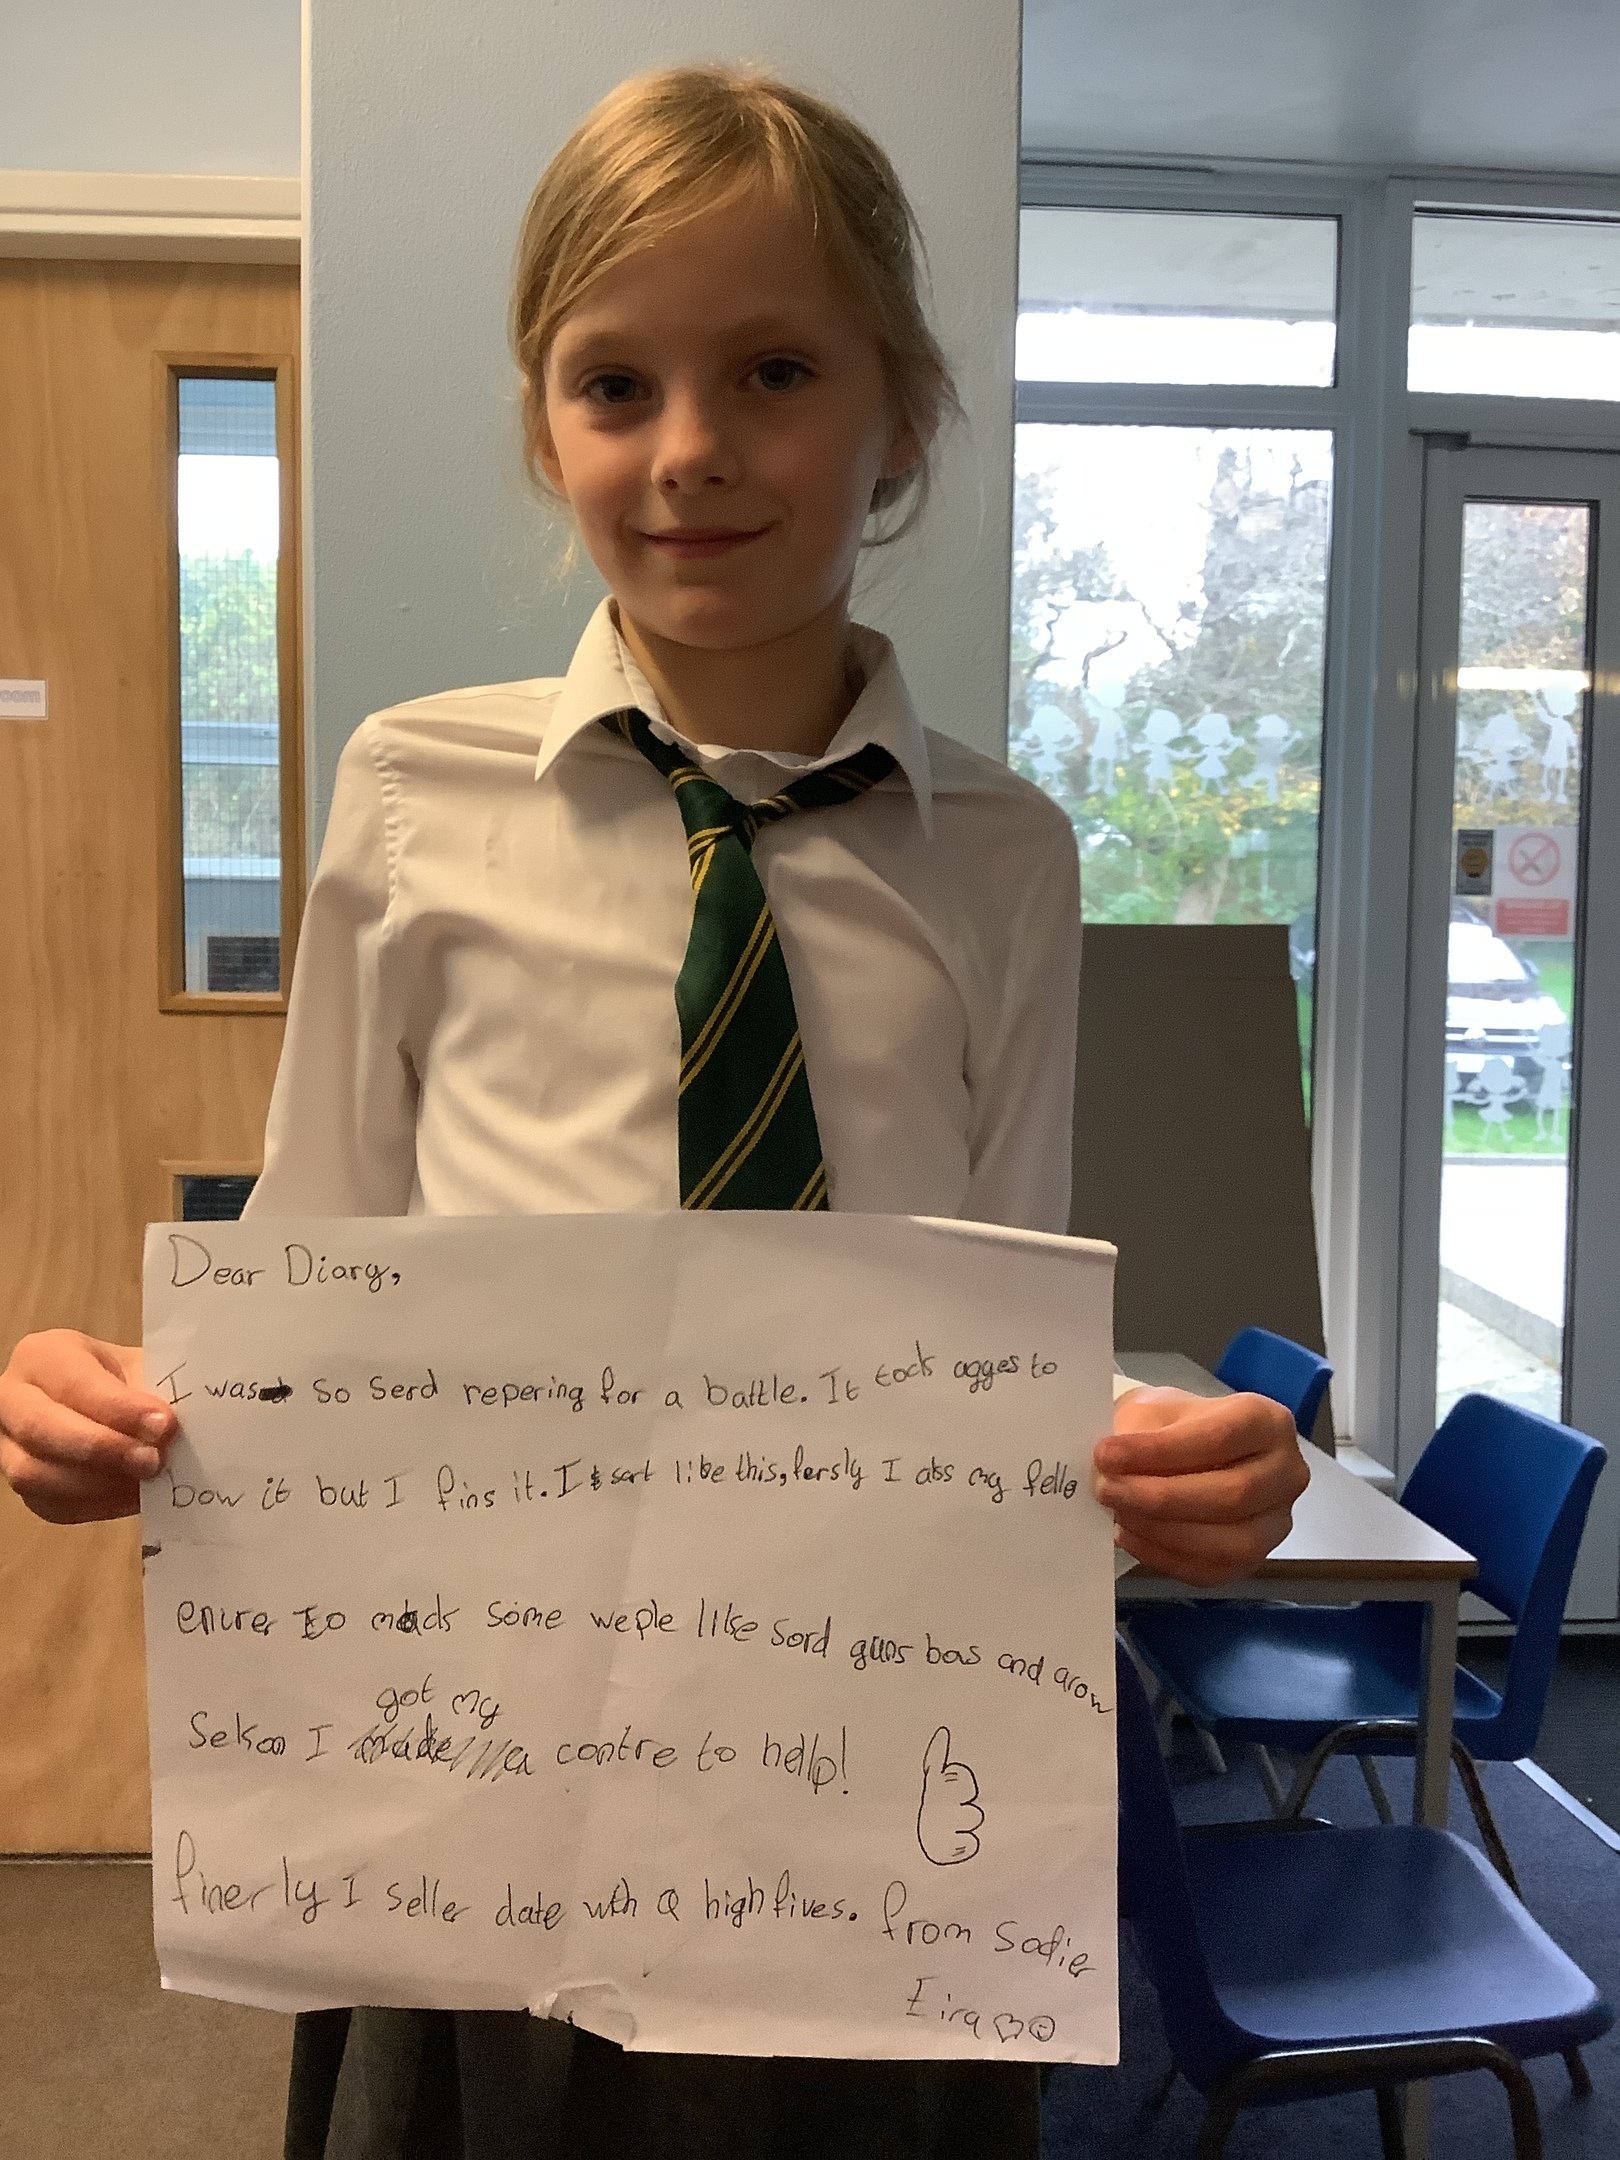 Dear Diary,
I was so Serd repering for a battle. It tock agges to
bow it but I fins it. I sart like this, fersly I abs my fello
enirer to mack some weple like sord guns bows and arow
Sekon I got my contre to hellp!
finerly I seller date with a high fives. from Sodier
Eira
oom